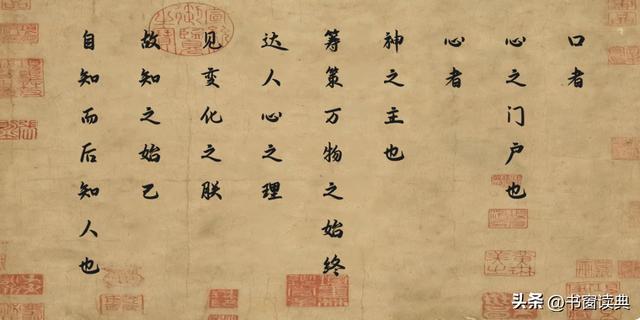 口者
心之门户也
心者
神之主也
筹策万物之始终
达人心之理
见变化之朕
故知之始己
自知而后知人也
头条 @书窗读典